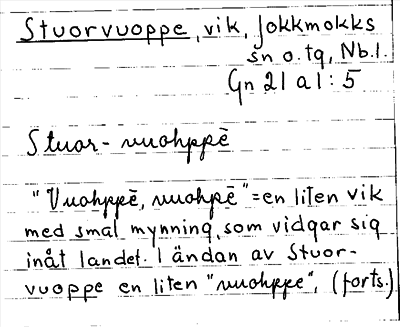 Stuorvuoppe, vik, Jokkmokks
sn o. tg, Nb.l.
Gn 21 a 1 : 5
Stuor-vuohppē
"Vuohppē, vuohpē" = en liten vik
med smal mynning, som vidgar sig
inåt landet. I ändan av Stuor-
vuoppe en liten "vuohppe", (forts.)